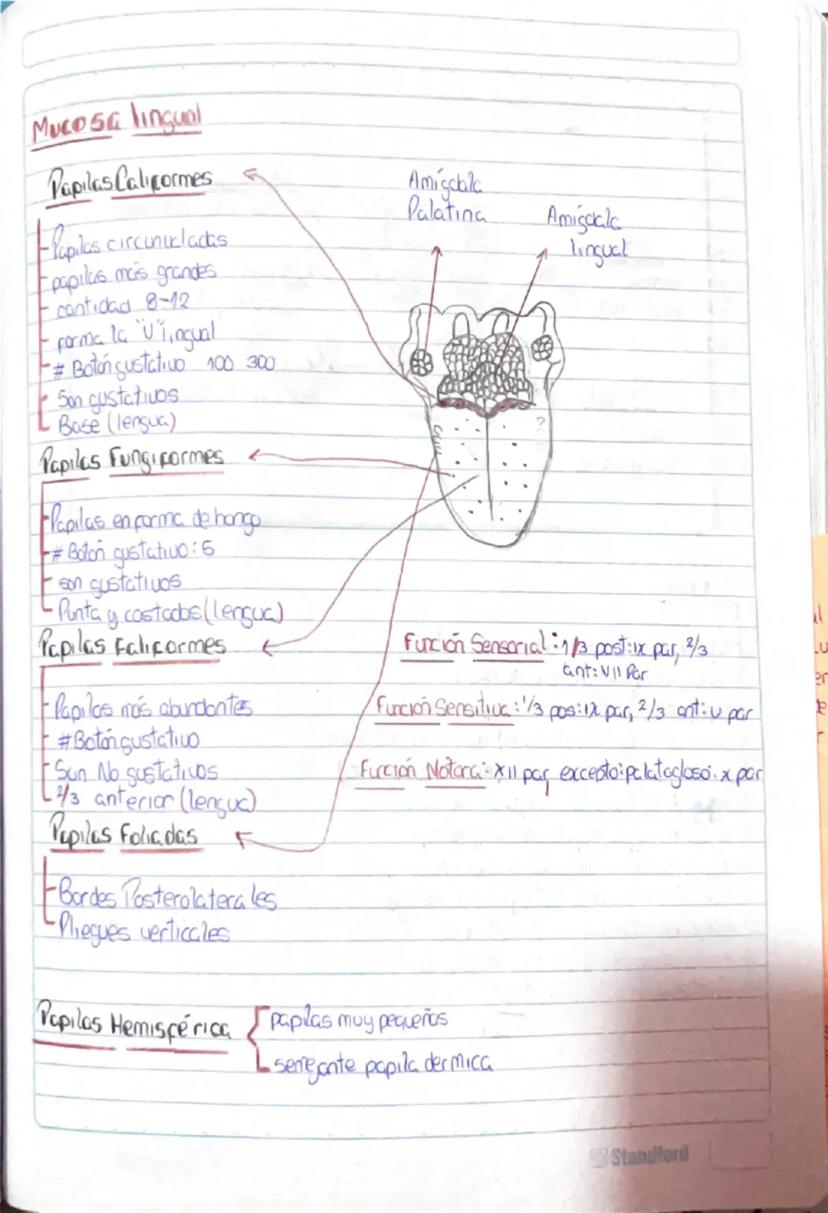 Mucosa lingual
Papilas Califormes
Papilas circunvaladas
papilas más grandes
cantidad 8-12
forma la "V" lingual
# Botón gustativo 100 300
Son gustativos
Base (lengua)
Amígdala
Palatina
Amígdala
lingual
Papilas Fungiformes
Papilas en forma de hongo
# Botón gustativo: 5
son gustativos
Punta y costados (lengua)
Papilas Faliformes
Papilas más abundantes
# Botón gustativo
Son No gustativos
2/3 anterior (lengua)
Función Sensorial: 1/3 post: IX par, 2/3
ant: VII Par
Función Sensitiva: 1/3 pos: IX par, 2/3 ant: V par
Función Notora: XII par, excepto: palatogloso: X par
Papilas Foliadas
Bordes Posterolaterales
Pliegues verticales
Papilas Hemisférica
papilas muy pequeños
semejante papila dermica
Standford